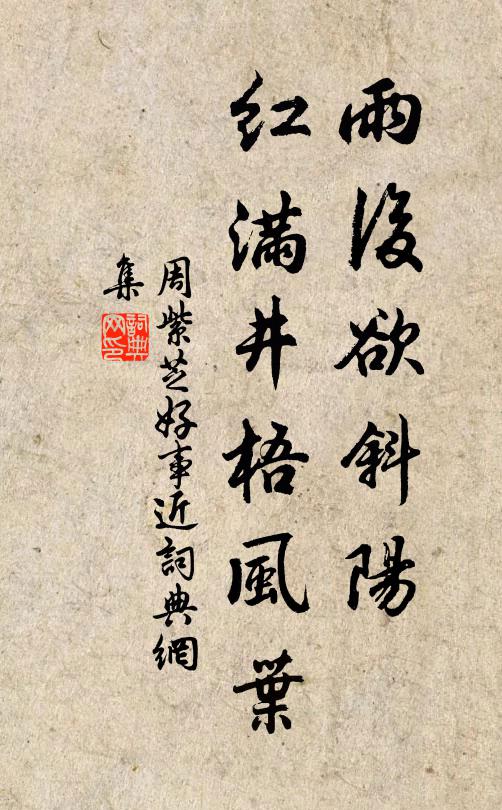 雨後欲斜陽
紅滿井梧風葉
周紫芝好事近詞典網
集
詞典
网印